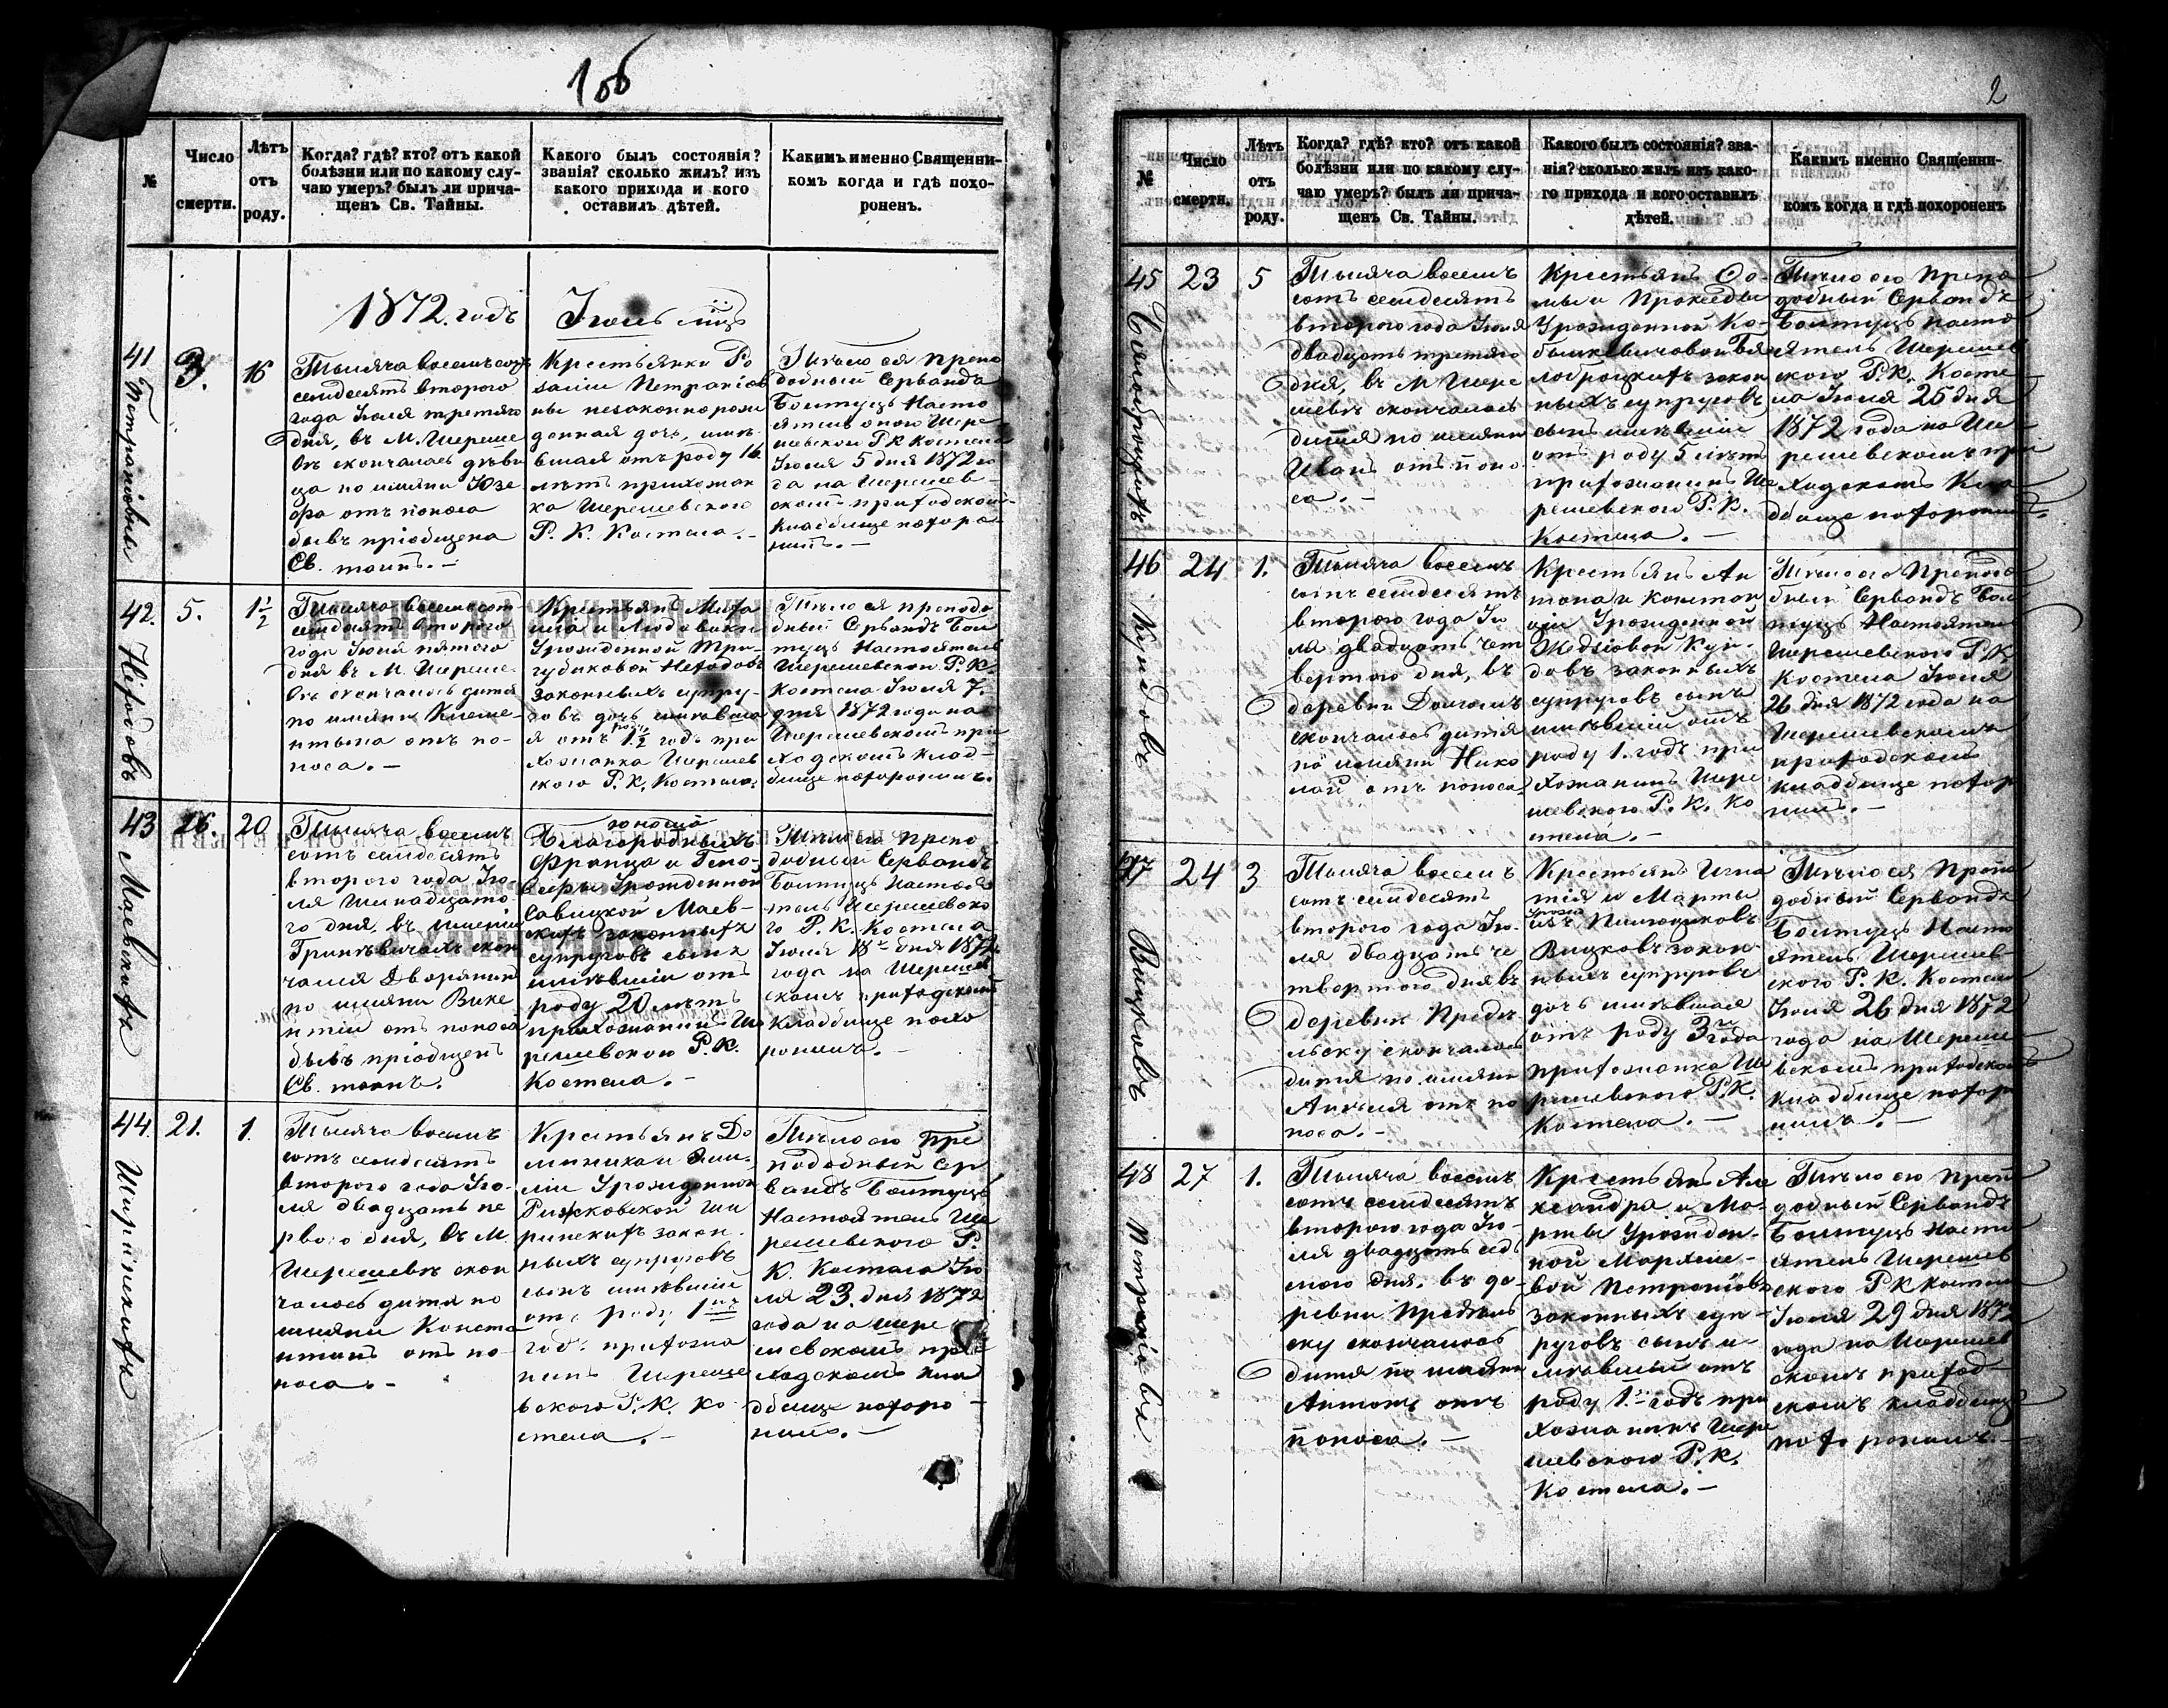 106
№
Число смерти.
Лѣтъ отъ роду.
Когда? гдѣ? кто? отъ какой
болѣзни или по какому слу-
чаю умеръ? былъ ли прича-
щенъ Св. Тайны.
Какого былъ состоянія?
званія? сколько жилъ? изъ
какого прихода и кого
оставилъ дѣтей.
Какимъ именно Священни-
комъ когда и гдѣ похо-
роненъ.
1872. годъ
Іюль мцъ
41
Петраніовны
3.
16
Тысяча восемьсотъ
семдесятъ второго
года Іюля третяго
дня, въ М. Шереше
въ скончалась дѣви
ца по имяни Юзе
фа отъ поноса
бывъ пріобщена
Св. таинъ. —
Крестьянки Ро
заліи Петраніов
ны незаконнорож
денная дочь, имѣ
вшая отъ роду 16
лѣтъ прихожан
ка Шерешевского
Р. К. Костела. —
Тѣло ея препо
добный Сервандъ
Болтуцъ Насто
ятель оного Шере
шевской Р К Костела
Іюля 5 дня 1872 го
да на Шерешев
скомъ приходскомъ
кладбище похоро
нилъ. —
42.
Нефодовъ
5.
1 1/2
Тысяча восемьсот
семдесятъ второго
года Іюля пятого
дня въ М. Шереше
въ скончалось дитя
по имяни Клеме-
нтына отъ по-
носа. —
Крестьянъ Миха
ила и Людовики
Урожденной Три-
губиковой Нефодовъ
законныхъ супру-
говъ дочь имѣвша
я отъ роду 1 1/2 годъ при
хожанка Шерешев
ского Р. К. Костела.
Тѣло ея преподо
бный Сервандъ Бол
туцъ Настоятель
Шерешевской Р. К.
Костела Іюля 7.
дня 1872 года на
Шерешевскомъ при
ходскомъ клад-
бище похоронилъ.
43
Маевскихъ
16.
20
Тысяча восемъ
сотъ семдесятъ
второго года Ію-
ля шинадцато
го дня, въ имѣніи
Гриневичахъ скон
чался Дворянинъ
по имяни Вике
нтій отъ поноса
бывъ пріобщенъ
Св. таинъ.
юноша
Благородныхъ
Франца и Гено-
вефы Урожденной
Савицкой Маев-
скихъ законныхъ
супруговъ сынъ
имѣвшій отъ
роду 20 лѣтъ
прихожанинъ Ше
решевского Р. К.
Костела. —
Тѣло его препо
добный Сервандъ
Болтуцъ Настоя
тель Шерешевско
го Р. К. Костела
Іюля 18 дня 1872
года на Шерешев
скомъ приходскомъ
кладбище похо
ронилъ. —
44.
Ширинскихъ
21.
1.
Тысяча восемъ
сотъ семдесятъ
второго года Ію-
ля двадцать пе
рвого дня, въ М.
Шерешевѣ скон
чалось дитя по
имяни Конста
нтинъ отъ по-
носа. —
Крестьянъ До
миника и Эми-
ліи Урожденной
Рижковской Ши
ринскихъ закон-
ныхъ супруговъ
сынъ имѣвшій
отъ роду 1
годъ прихожа
нинъ Шереше
вского Р. К. Ко
стела. —
Тѣло его Пре
подобный Сер
вандъ Болтуцъ
Настоятель Ше
решевского Р.
К. Костела Ію
ля 23. дня 1872
года на Шере
шевскомъ при
ходскомъ кла
дбище похоро
нилъ. —
2
№
Число смерти.
Лѣтъ отъ роду.
Когда? гдѣ? кто? отъ какой
болѣзни или по какому слу-
чаю умеръ? былъ ли прича-
щенъ Св. Тайны.
Какого былъ состоянія? зва-
нія? сколько жилъ изъ како-
го прихода и кого оставилъ
дѣтей.
Какимъ именно Священни-
комъ когда и гдѣ похороненъ
45
23
5
Тысяча восемъ
сотъ семдесятъ
второго года Іюля
двадцать третяго
дня, въ М Шере
шевѣ скончалось
дитя по имяни
Иванъ отъ поно
са. —
Крестьянъ Ѳо-
мы и Проксѣды
Урожденной Ко-
законныхъ супруговъ
сынъ имѣвшій
отъ роду 5 лѣтъ
прихожанинъ Ше
решевского Р. К.
Костела. —
Тѣло его Препо
добный Сервандъ
Болтуцъ насто
ятель Шерешев
ского Р. К. Косте
ла Іюля 25 дня
1872 года на Ше-
решевскомъ при
ходскомъ Кла
дбище похоронилъ.
46
Куидовъ
24
1.
Тысяча восемъ
сотъ семдесятъ
второго года Ію
ля двадцать чет
вертого дня, въ
деревни Долгомъ
скончалось дитя
по имяни Нико
лай отъ поноса.
Крестьянъ Ан
тона и Констан
ціи Урожденной
довъ законныхъ
супруговъ сынъ
имѣвшій отъ
роду 1. годъ при
хожанинъ Шере
шевского Р. К. Ко
стела. —
Тѣло его Преподо
бный Сервандъ Бол
туцъ Настоятель
Шерешевского Р. К.
Костела Іюля
26 дня 1872 года на
Шерешевскомъ
приходскомъ
кладбище похоро
нилъ. —
47
Вицковъ
24
3
Тысяча восемъ
сотъ семдесятъ
второго года Ію-
ля двадцать че
твертого дня въ
деревни Предѣ
льску скончалось
дитя по имяни
Анеля отъ по
носа. —
Крестьянъ Игна
тія и Марты
Вицковъ закон-
ныхъ супруговъ
дочь имѣвшая
отъ роду 3 года
прихожанка Ше
решевского Р. К.
Костела. —
Тѣло ея Препо
добный Сервандъ
Болтуцъ Насто
ятель Шерешев-
ского Р. К. Костела
Іюля 26 дня 1872
года на Шереше
вскомъ приходскомъ
кладбище похоро
нилъ. —
48
27
1.
Тысяча восемъ
сотъ семдесятъ
второго года Ію-
ля двадцать сед
мого дня, въ де-
ревни Предѣль
ску скончалось
дитя по имяни
Антонъ отъ
поноса. —
Крестьянъ Але
ксандра и Ма-
рты Урожден-
ной
законныхъ суп-
руговъ сынъ и-
мѣвшій отъ
роду 1. годъ при
хожанинъ Шере
шевского Р. К.
Костела. —
Тѣло его Препо
добный Сервандъ
Болтуцъ Насто
ятель Шерешев
ского Р К Костела
Іюля 29 дня 1872
года на Шерешев
скомъ приход-
скомъ кладбище
похоронилъ. —